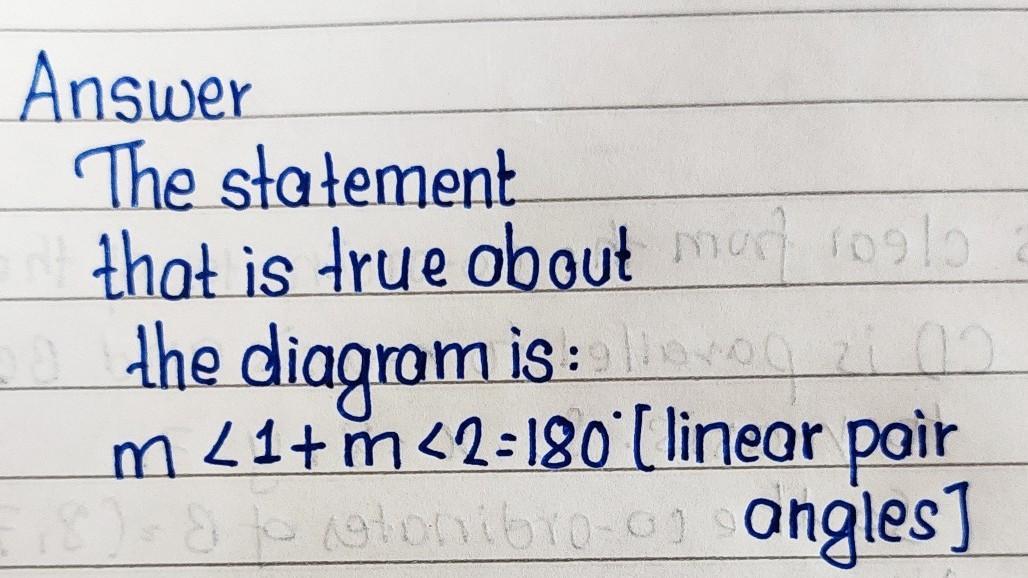 Answer
The statement
that is true about
the diagram is:
m <1 + m <2 = 180° [linear pair
angles]